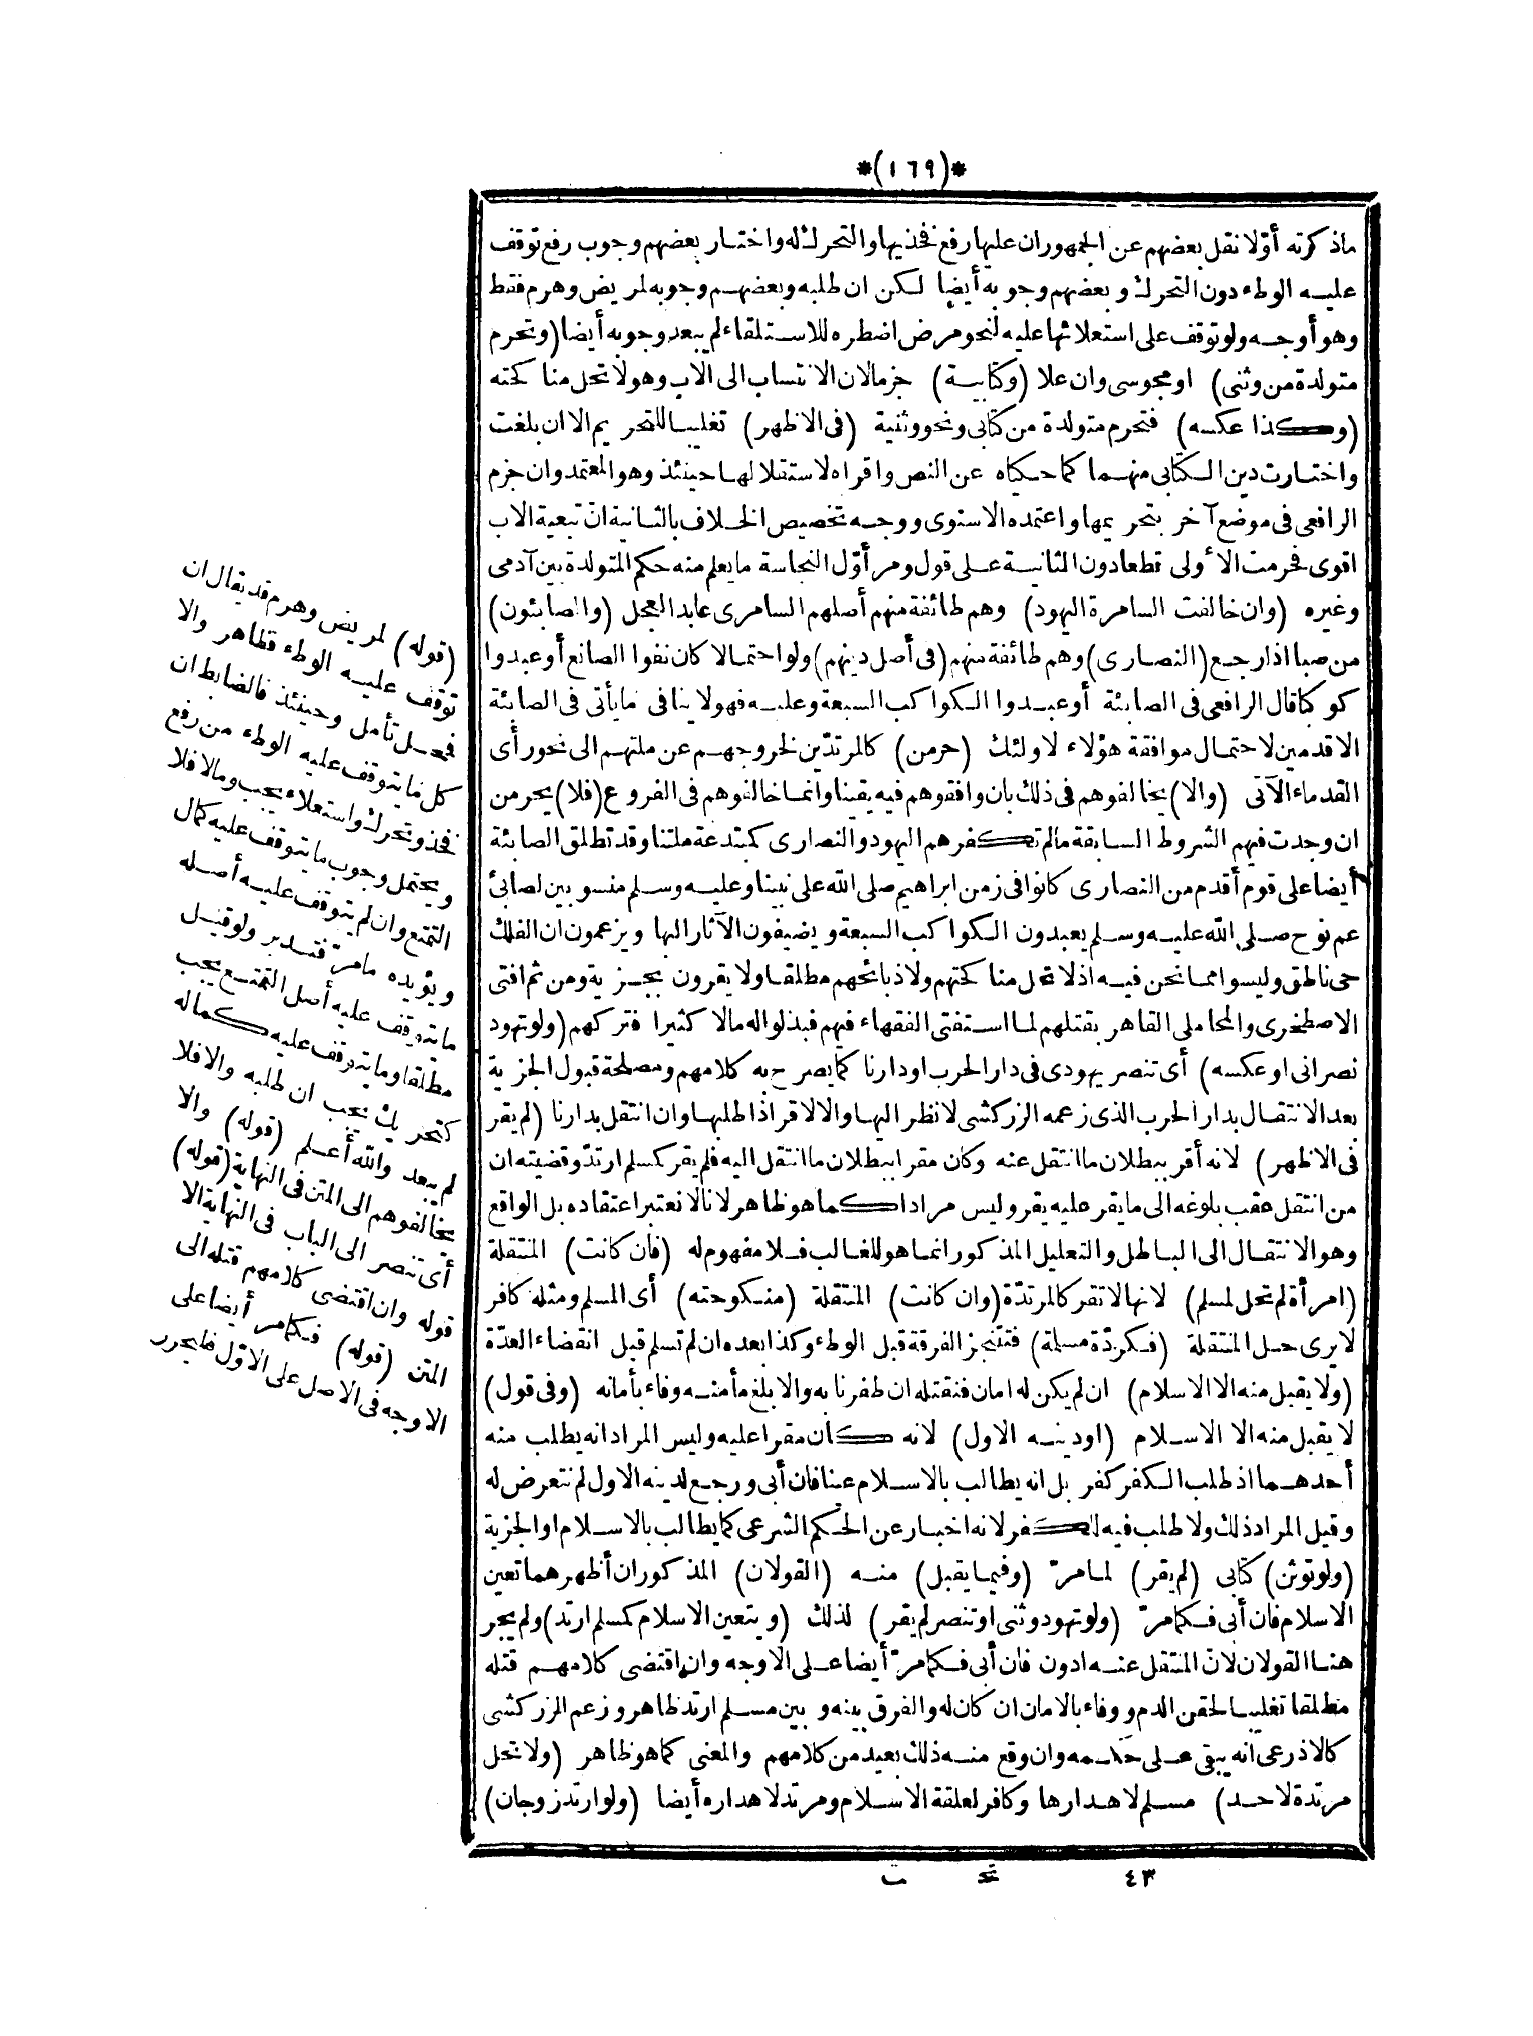 *(١٦٩)*
ماذكرته أوّلا نقل بعضهم عن الجمهور ان عليها رفع فخذيها والتحرك له واختار بعضهم وجوب رفع توقف
عليه الوطء دون التحرك وبعضهم وجوبه أيضا لكن ان طلبه وبعضهم وجوبه لمريض وهرم فقط
وهو أوجه ولو توقف على استعلائها عليه لنحو مرض اضطره للاستلقاء لم يبعد وجوبه أيضا (وتحرم
متولدة من وثنى) او مجوسى وان علا (وكتابية) جزما لان الانتساب الى الاب وهو لا تحل مناكحته
(وكذا عكسه) فتحرم متولدة من كتابى ونحو وثنية (فى الاظهر) تغليبا للتحريم الا ان بلغت
واختارت دين الكتابى منهما كما حكياه عن النص واقراه لاستقلالها حينئذ وهو المعتمد وان جزم
الرافعى فى موضع آخر بتحريمها واعتمده الاسنوى ووجه تخصيص الخلاف بالثانية انّ تبعية الاب
اقوى فحرمت الأولى قطعا دون الثانية على قول ومر أوّل النجاسة ما يعلم منه حكم المتولدة بين آدمى
وغيره (وان خالفت السامرة اليهود) وهم طائفة منهم أصلهم السامرى عابد العجل (والصابئون)
من صبا اذا رجع (النصارى) وهم طائفة منهم (فى أصل دينهم) ولو احتمالا كان نفوا الصانع أو عبدوا
كوكبا قال الرافعى فى الصابئة أو عبدوا الكواكب السبعة وعليه فهو لا ينافى ما يأتى فى الصابئة
الاقدمين لاحتمال موافقة هؤلاء لاولئك (حرمن) كالمرتدّين لخروجهم عن ملتهم الى نحو رأى
القدماء الآتى (والا) يخالفوهم فى ذلك بان وافقوهم فيه يقينا وانما خالفوهم فى الفروع (فلا) يحرمن
ان وجدت فيهم الشروط السابقة مالم تكفرهم اليهود والنصارى كمبتدعة ملتنا وقد تطلق الصابئة
أيضا على قوم أقدم من النصارى كانوا فى زمن ابراهيم صلى الله على نبينا وعليه وسلم منسوبين لصابئ
عم نوح صلى الله عليه وسلم يعبدون الكواكب السبعة ويضيفون الآثار اليها ويزعمون ان الفلك
حى ناطق وليسوا مما نحن فيه اذ لا تحل مناكحتهم ولا ذبائحهم مطلقا ولا يقرون بجزية ومن ثم افتى
الاصطخرى والمحاملى القاهر بقتلهم لما استفتى الفقهاء فيهم فبذلوا له مالا كثيرا فتركهم (ولو تهود
نصرانى او عكسه) أى تنصر يهودى فى دار الحرب او دارنا كما يصرح به كلامهم ومصلحة قبول الجزية
بعد الانتقال بدار الحرب الذى زعمه الزركشى لا نظر اليها والا لاقر اذا طلبها وان انتقل بدارنا (لم يقر
فى الاظهر) لانه أقر ببطلان ما انتقل عنه وكان مقرا ببطلان ما انتقل اليه فلم يقر كمسلم ارتدّ وقضيته ان
من انتقل عقب بلوغه الى ما يقر عليه يقر وليس مرادا كما هو ظاهر لانا لا نعتبر اعتقاده بل الواقع
وهو الانتقال الى الباطل والتعليل المذكور انما هو للغالب فلا مفهوم له (فان كانت) المنتقلة
(امرأة لم تحل لمسلم) لانها لا تقر كالمرتدّة (وان كانت) المنتقلة (منكوحته) أى المسلم ومثله كافر
لا يرى حل المنتقلة (فكردّة مسلمة) فتتنجز الفرقة قبل الوطء وكذا بعده ان لم تسلم قبل انقضاء العدّة
(ولا يقبل منه الا الاسلام) ان لم يكن له امان فنقتله ان ظفرنا به والا بلغ مأمنه وفاء بأمانه (وفى قول)
لا يقبل منه الا الاسلام (او دينه الاول) لانه كان مقرا عليه وليس المراد انه يطلب منه
أحدهما اذ طلب الكفر كفر بل انه يطالب بالاسلام عينا فان أبى ورجع لدينه الاول لم نتعرض له
وقيل المراد ذلك ولا طلب فيه للكفر لانه اخبار عن الحكم الشرعى كما يطالب بالاسلام او الجزية
(ولو توثن) كتابى (لم يقر) لما مرّ (وفيما يقبل) منه (القولان) المذكوران أظهرهما تعين
الاسلام فان أبى فكما مرّ (ولو تهود وثنى او تنصر لم يقر) لذلك (ويتعين الاسلام كمسلم ارتد) ولم يجر
هنا القولان لانّ المنتقل عنه ادون فان أبى فكما مرّ أيضا على الاوجه وان اقتضى كلامهم قتله
مطلقا تغليبا لحقن الدم ووفاء بالامان ان كان له والفرق بينه وبين مسلم ارتد ظاهر وزعم الزركشى
كالاذرعى انه يبقى على حكمه وان وقع منه ذلك بعيد من كلامهم والمعنى كما هو ظاهر (ولا تحل
مرتدة لاحد) مسلم لاهدارها وكافر لعلقة الاسلام ومرتد لاهداره أيضا (ولو ارتد زوجان)
(قوله) لمريض وهرم قد يقال ان
توقف عليه الوطء فظاهر والا
فمحل تأمل وحينئذ فالضابط ان
كل ما يتوقف عليه الوطء من رفع
فخذ وتحرك واستعلاء يجب وما لا فلا
ويحتمل وجوب ما يتوقف عليه كمال
التمتع وان لم يتوقف عليه أصله
ويؤيده ما مرّ فتدبر ولو قيل
ما يتوقف عليه أصل التمتع يجب
مطلقا وما يتوقف عليه كماله
كتحريك يجب ان طلبه والا فلا
لم يبعد والله أعلم (قوله) والا
يخالفوهم الى المتن فى النهاية (قوله)
أى تنصر الى الباب فى النهاية الا
قوله وان اقتضى كلامهم قتله الى
المتن (قوله) فكما مر أيضا على
الاوجه فى الاصل على الاوّل فليحرر
٤٣ تحـ ت